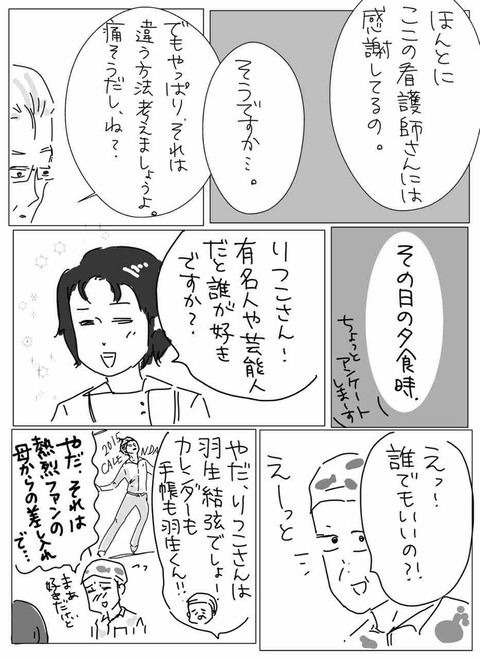 ほんとに
ここの看護師さんには
感謝してるの。
そうですか…。
でもやっぱり、それは
違う方法考えましょうよ。
痛そうだし、ね？
その日の夕食時、
ちょっと
アンケート
しまーす
りつこさん！
有名人や芸能人
だと誰が好き
ですか？
えっ！
誰でもいいの？！
えーっと
やだ、りつこさんは
羽生結弦でしょー！
カレンダーも
手帳も羽生くん！！
2015
CALE
NDA
やだ、それは
熱烈ファンの
母からの差し入れ
で…
まぁ
好きだけど